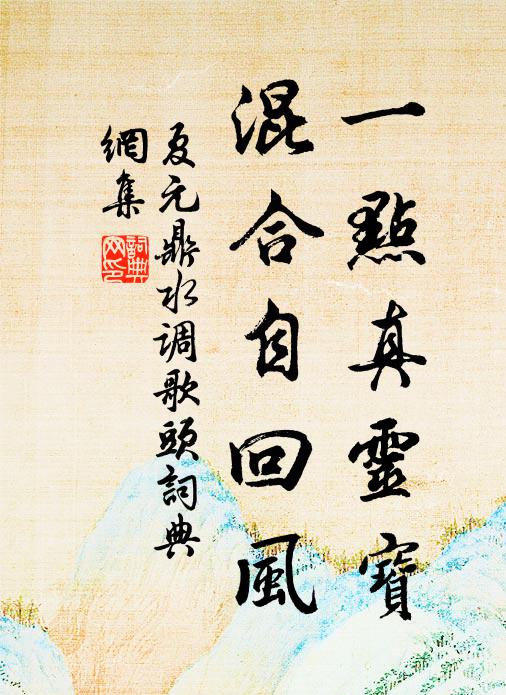 一點真靈寶
混合自回風
夏元鼎水调歌頭詞典
網集
詞典
网印